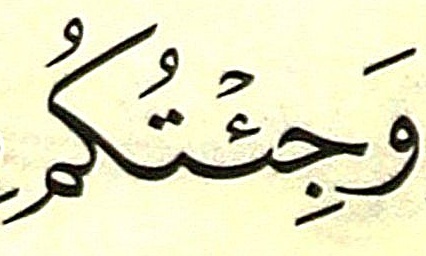 وَجِئْتُكُمُ